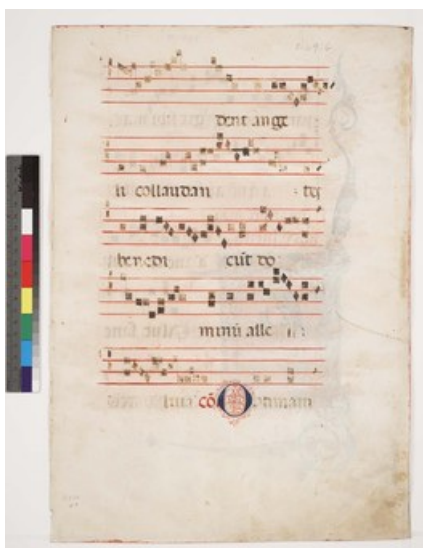 dent ange
li collaudan tes
benedi cūt do
minū alle
luia cō Optimam